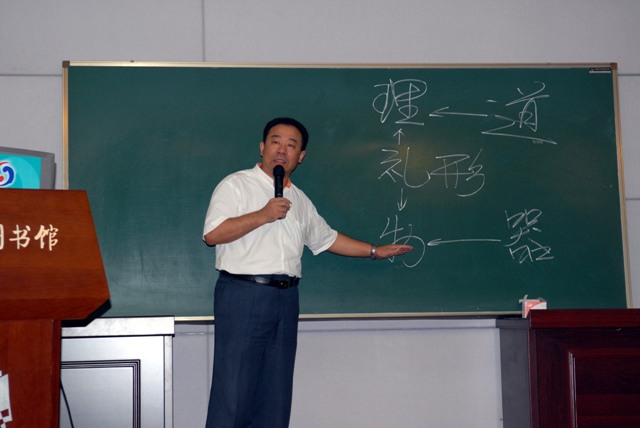 理 道
礼 形
物 器
书馆